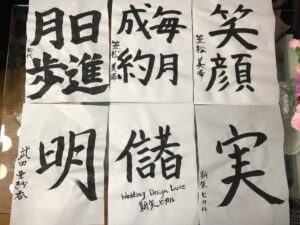 日進
月歩
毎月
成約
笑顔
笠松
明
武田
儲
Wedding Design Luce
新矢ヒカル
実
新矢ヒカル